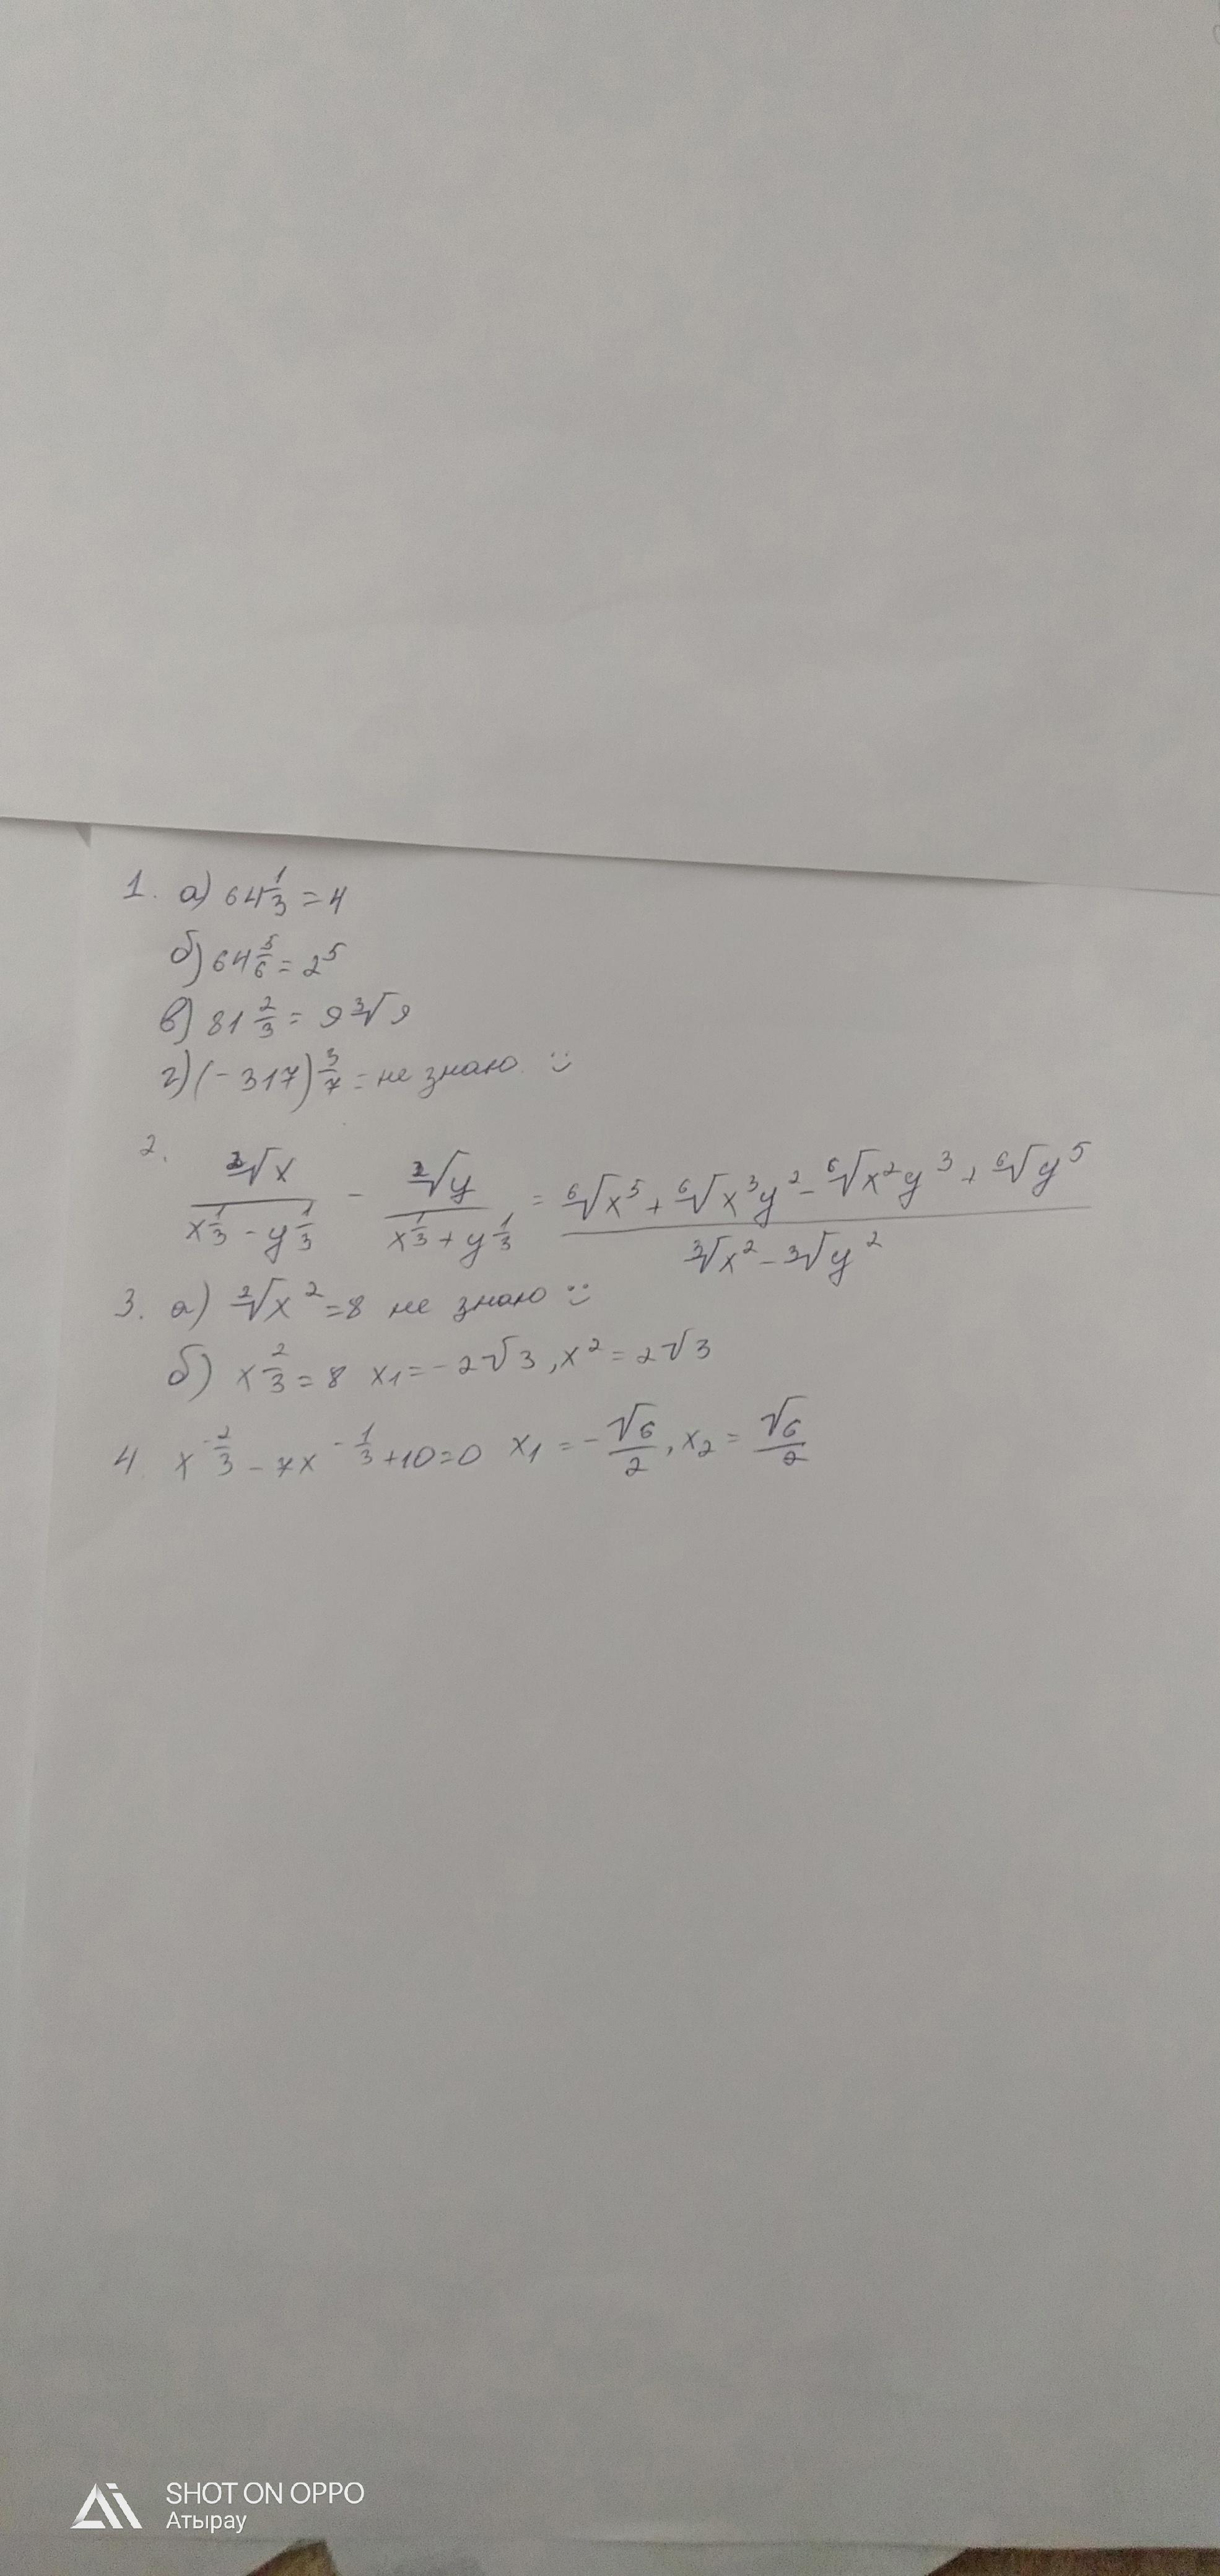 1. а) 64^{1/3} = 4
б) 64^{5/6} = 2^5
в) 81^{2/3} = 9∛9
г) (-317)^{3/7} = не знаю. :)
2. ∛x / (x^{1/3} - y^{1/3}) - ²√y / (x^{1/3} + y^{1/3}) = (⁶√x^5 + ⁶√x^3y^2 - ⁶√x^2y^3 + ⁶√y^5) / (∛x^2 - ∛y^2)
3. а) ²√x^2 = 8 не знаю :)
б) x^{2/3} = 8 x₁ = -2√3, x^2 = 2√3
4. x^{-2/3} - 7x^{-1/3} + 10 = 0 x₁ = -√6/2, x₂ = √6/2
SHOT ON OPPO
Атырау